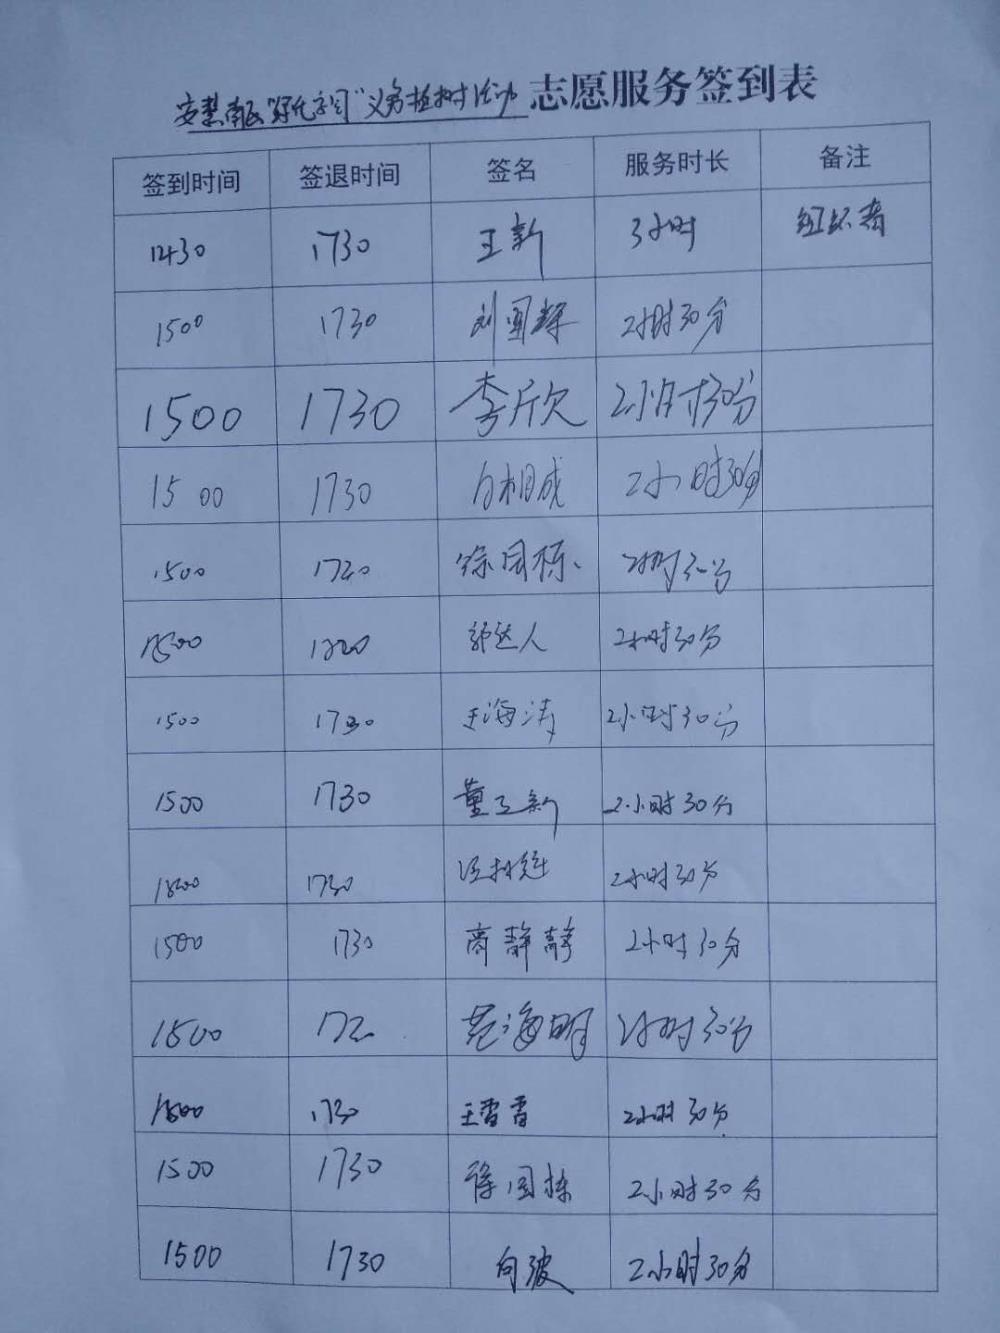 安慧南区 义务植树活动 志愿服务签到表
签到时间 签退时间 签名 服务时长 备注
1430 1730 王新 3小时 组织者
1500 1730 刘国辉 2小时30分
1500 1730 李欣 2小时30分
1500 1730 白相成 2小时30分
1500 1730 徐国栋 2小时30分
1500 1730 郭达人 2小时30分
1500 1730 王海涛 2小时30分
1500 1730 董立新 2小时30分
1500 1730 2小时30分
1500 1730 商静静 2小时30分
1500 范海明 2小时30分
1500 1730 王雪香 2小时30分
1500 1730 徐国栋 2小时30分
1500 1730 向波 2小时30分